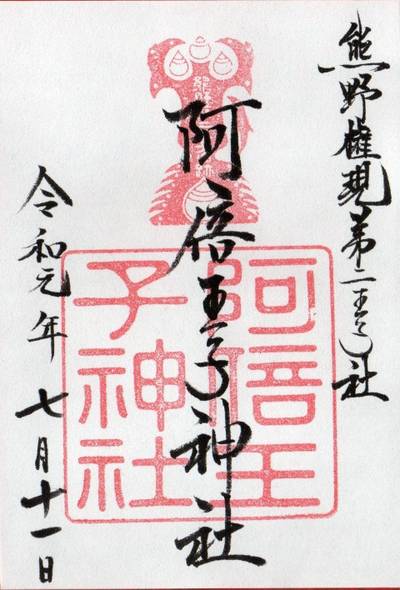 熊野権現第二王子社
阿倍王子神社
令和元年七月十一日
阿倍王
子神社